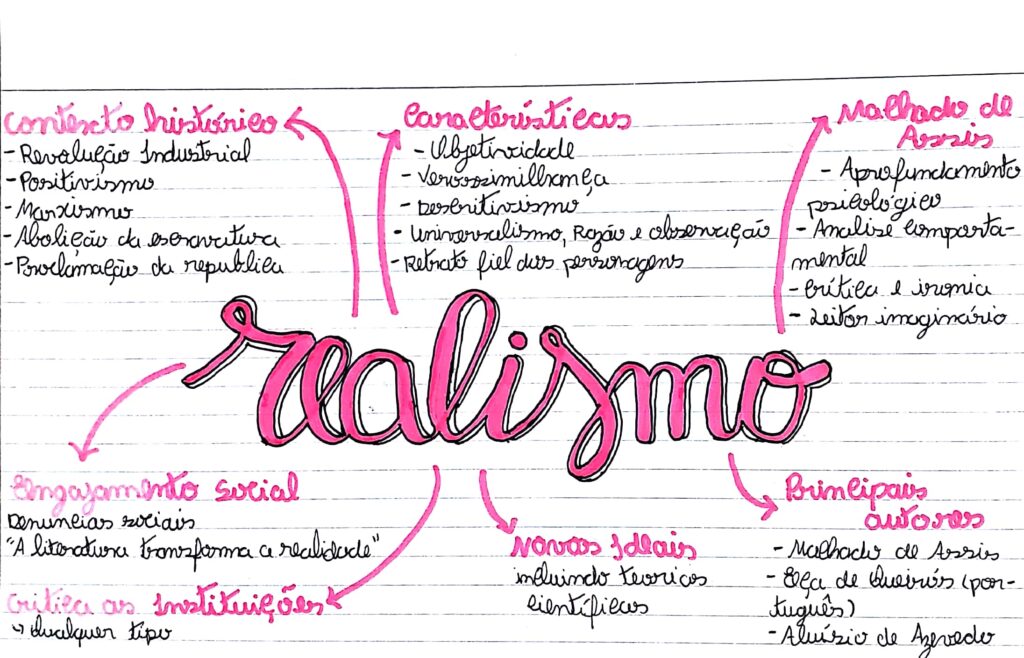 Contexto histórico
- Revolução Industrial
- Positivismo
- Marxismo
- Abolição da escravatura
- Proclamação da republica
Características
- Objetividade
- Verossimilhança
- Descritivismo
- Universalismo, Razão e observação
- Retrato fiel dos personagens
Malhado de
Assis
- Aprofundamento
psicológico
- Analise comporta-
mental
- Crítica e ironia
- Leitor imaginário
realismo
Engajamento social
Denuncias sociais
"A literatura transforma a realidade"
Critica as Instituições
↳ Qualquer tipo
Novos Ideais
incluindo teorias
científicas
Principais
autores
- Malhado de Assis
- Eça de Queirós (por-
tuguês)
- Aluísio de Azevedo